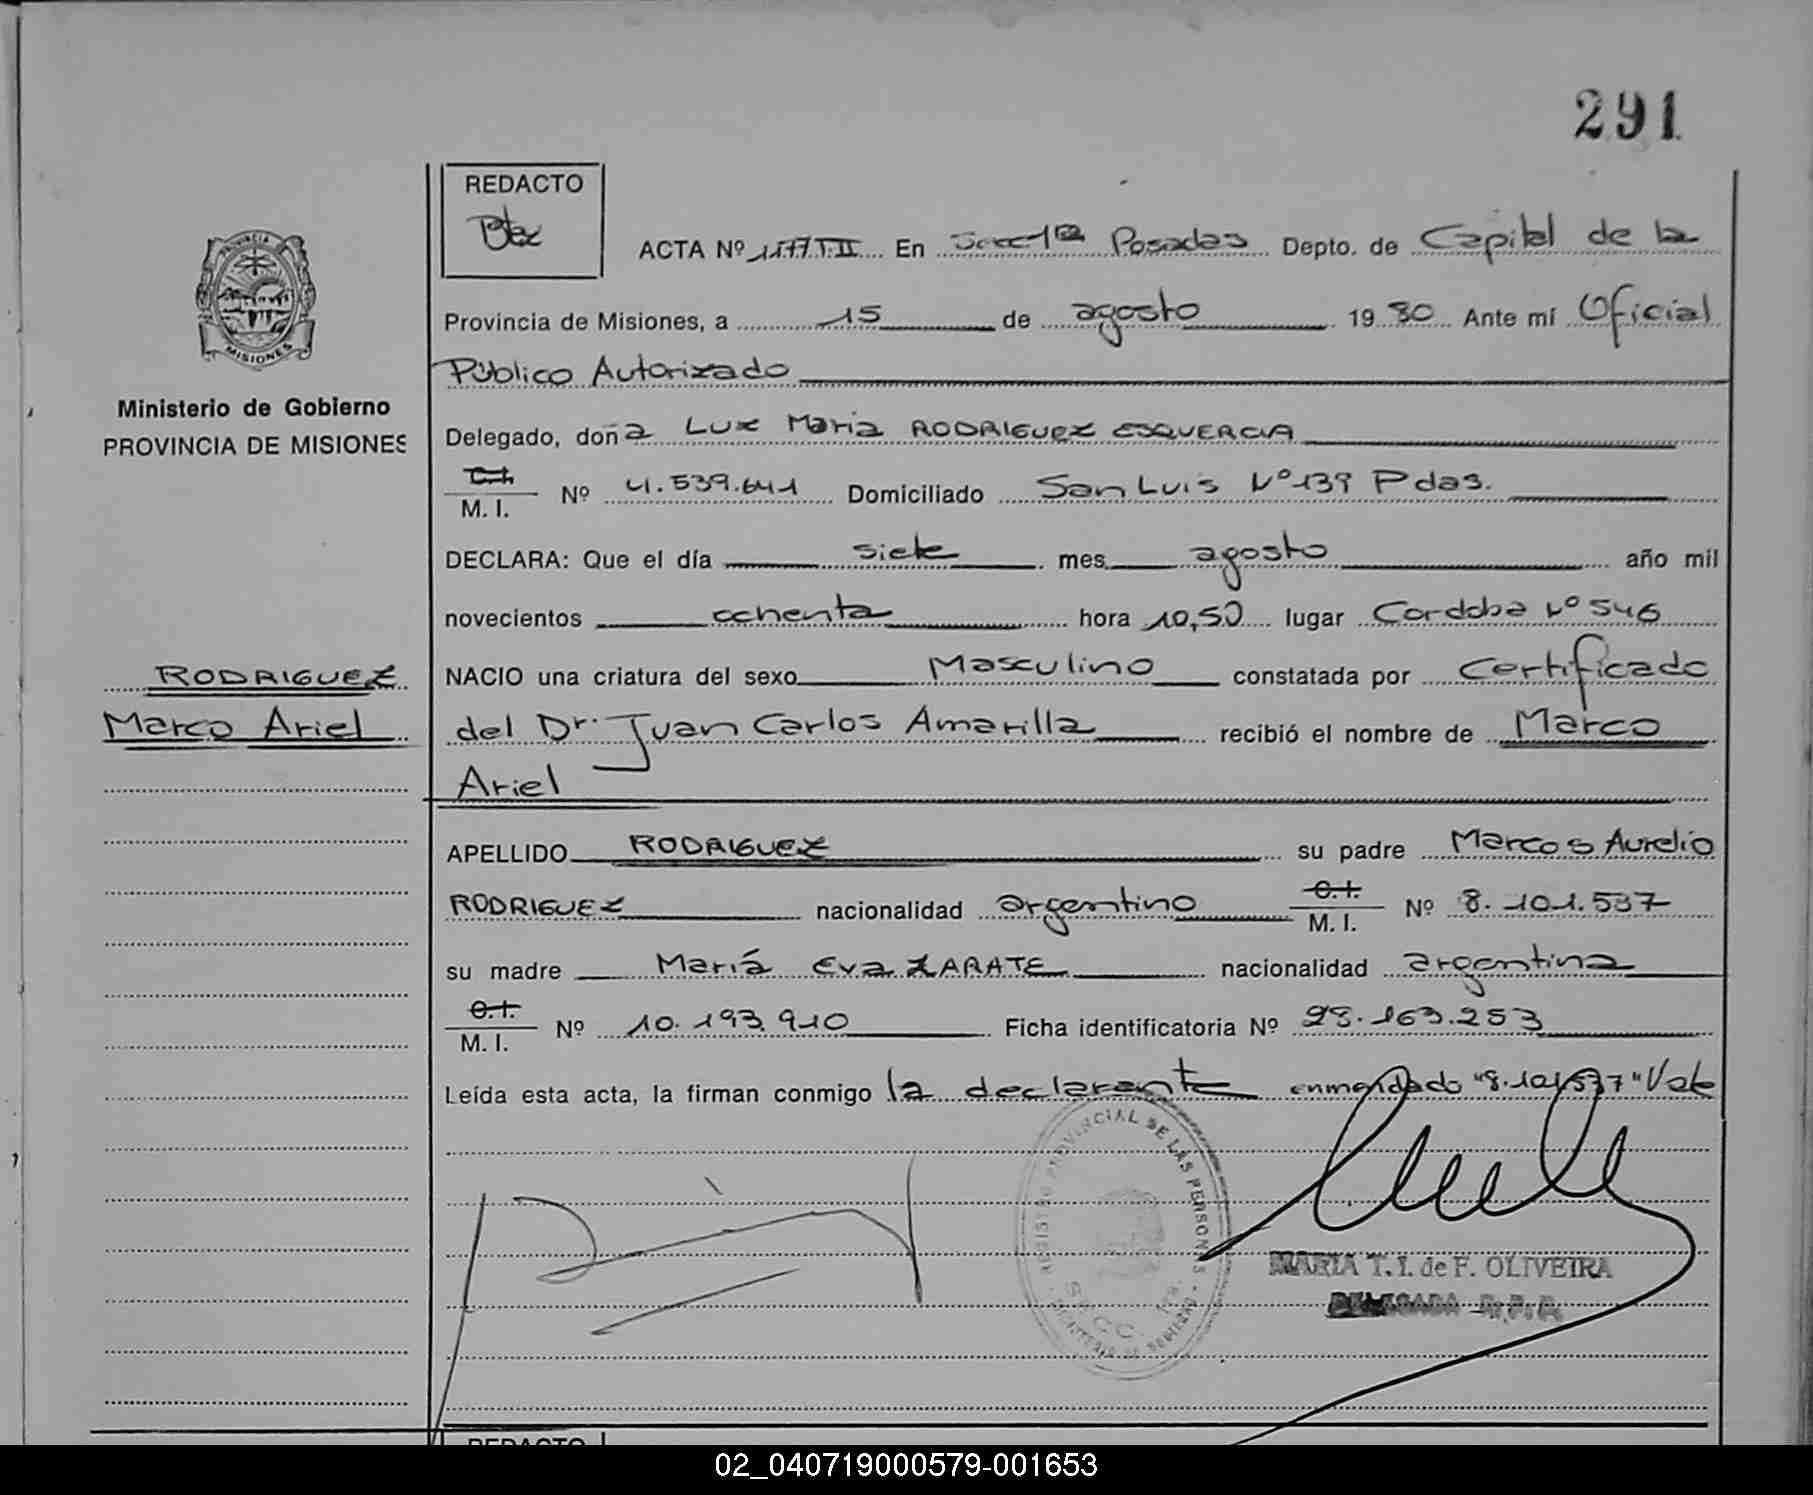 291
REDACTO
ACTA Nº 1177 T. II En Secc 1ª Posadas Depto. de Capital de la
Provincia de Misiones, a 15 de agosto 1980 Ante mí Oficial
Público Autorizado
PROVINCIA
MISIONES
Ministerio de Gobierno
PROVINCIA DE MISIONES
Delegado, doña Luz Maria RODRIGUEZ ESQUERCIA
C.I.
M. I. Nº 4.539.641 Domiciliado San Luis Nº 139 Pdas.
DECLARA: Que el día siete mes agosto año mil
novecientos ochenta hora 10,50 lugar Cordoba Nº 546
RODRIGUEZ
Marco Ariel
NACIO una criatura del sexo Masculino constatada por Certificado
del Dr. Juan Carlos Amarilla recibió el nombre de Marco
Ariel
APELLIDO RODRIGUEZ su padre Marcos Aurelio
RODRIGUEZ nacionalidad argentino C.I. M. I. Nº 8.101.537
su madre María Eva ZARATE nacionalidad argentina
C.I.
M. I. Nº 10.193.910 Ficha identificatoria Nº 28.163.253
Leída esta acta, la firman conmigo la declarante enmendado "8.101.537" Vale
REGISTRO PROVINCIAL DE LAS PERSONAS
SECC. 1ra.
MARIA T. I. de F. OLIVEIRA
DELEGADA R. P. P.
REDACTO
02_040719000579-001653